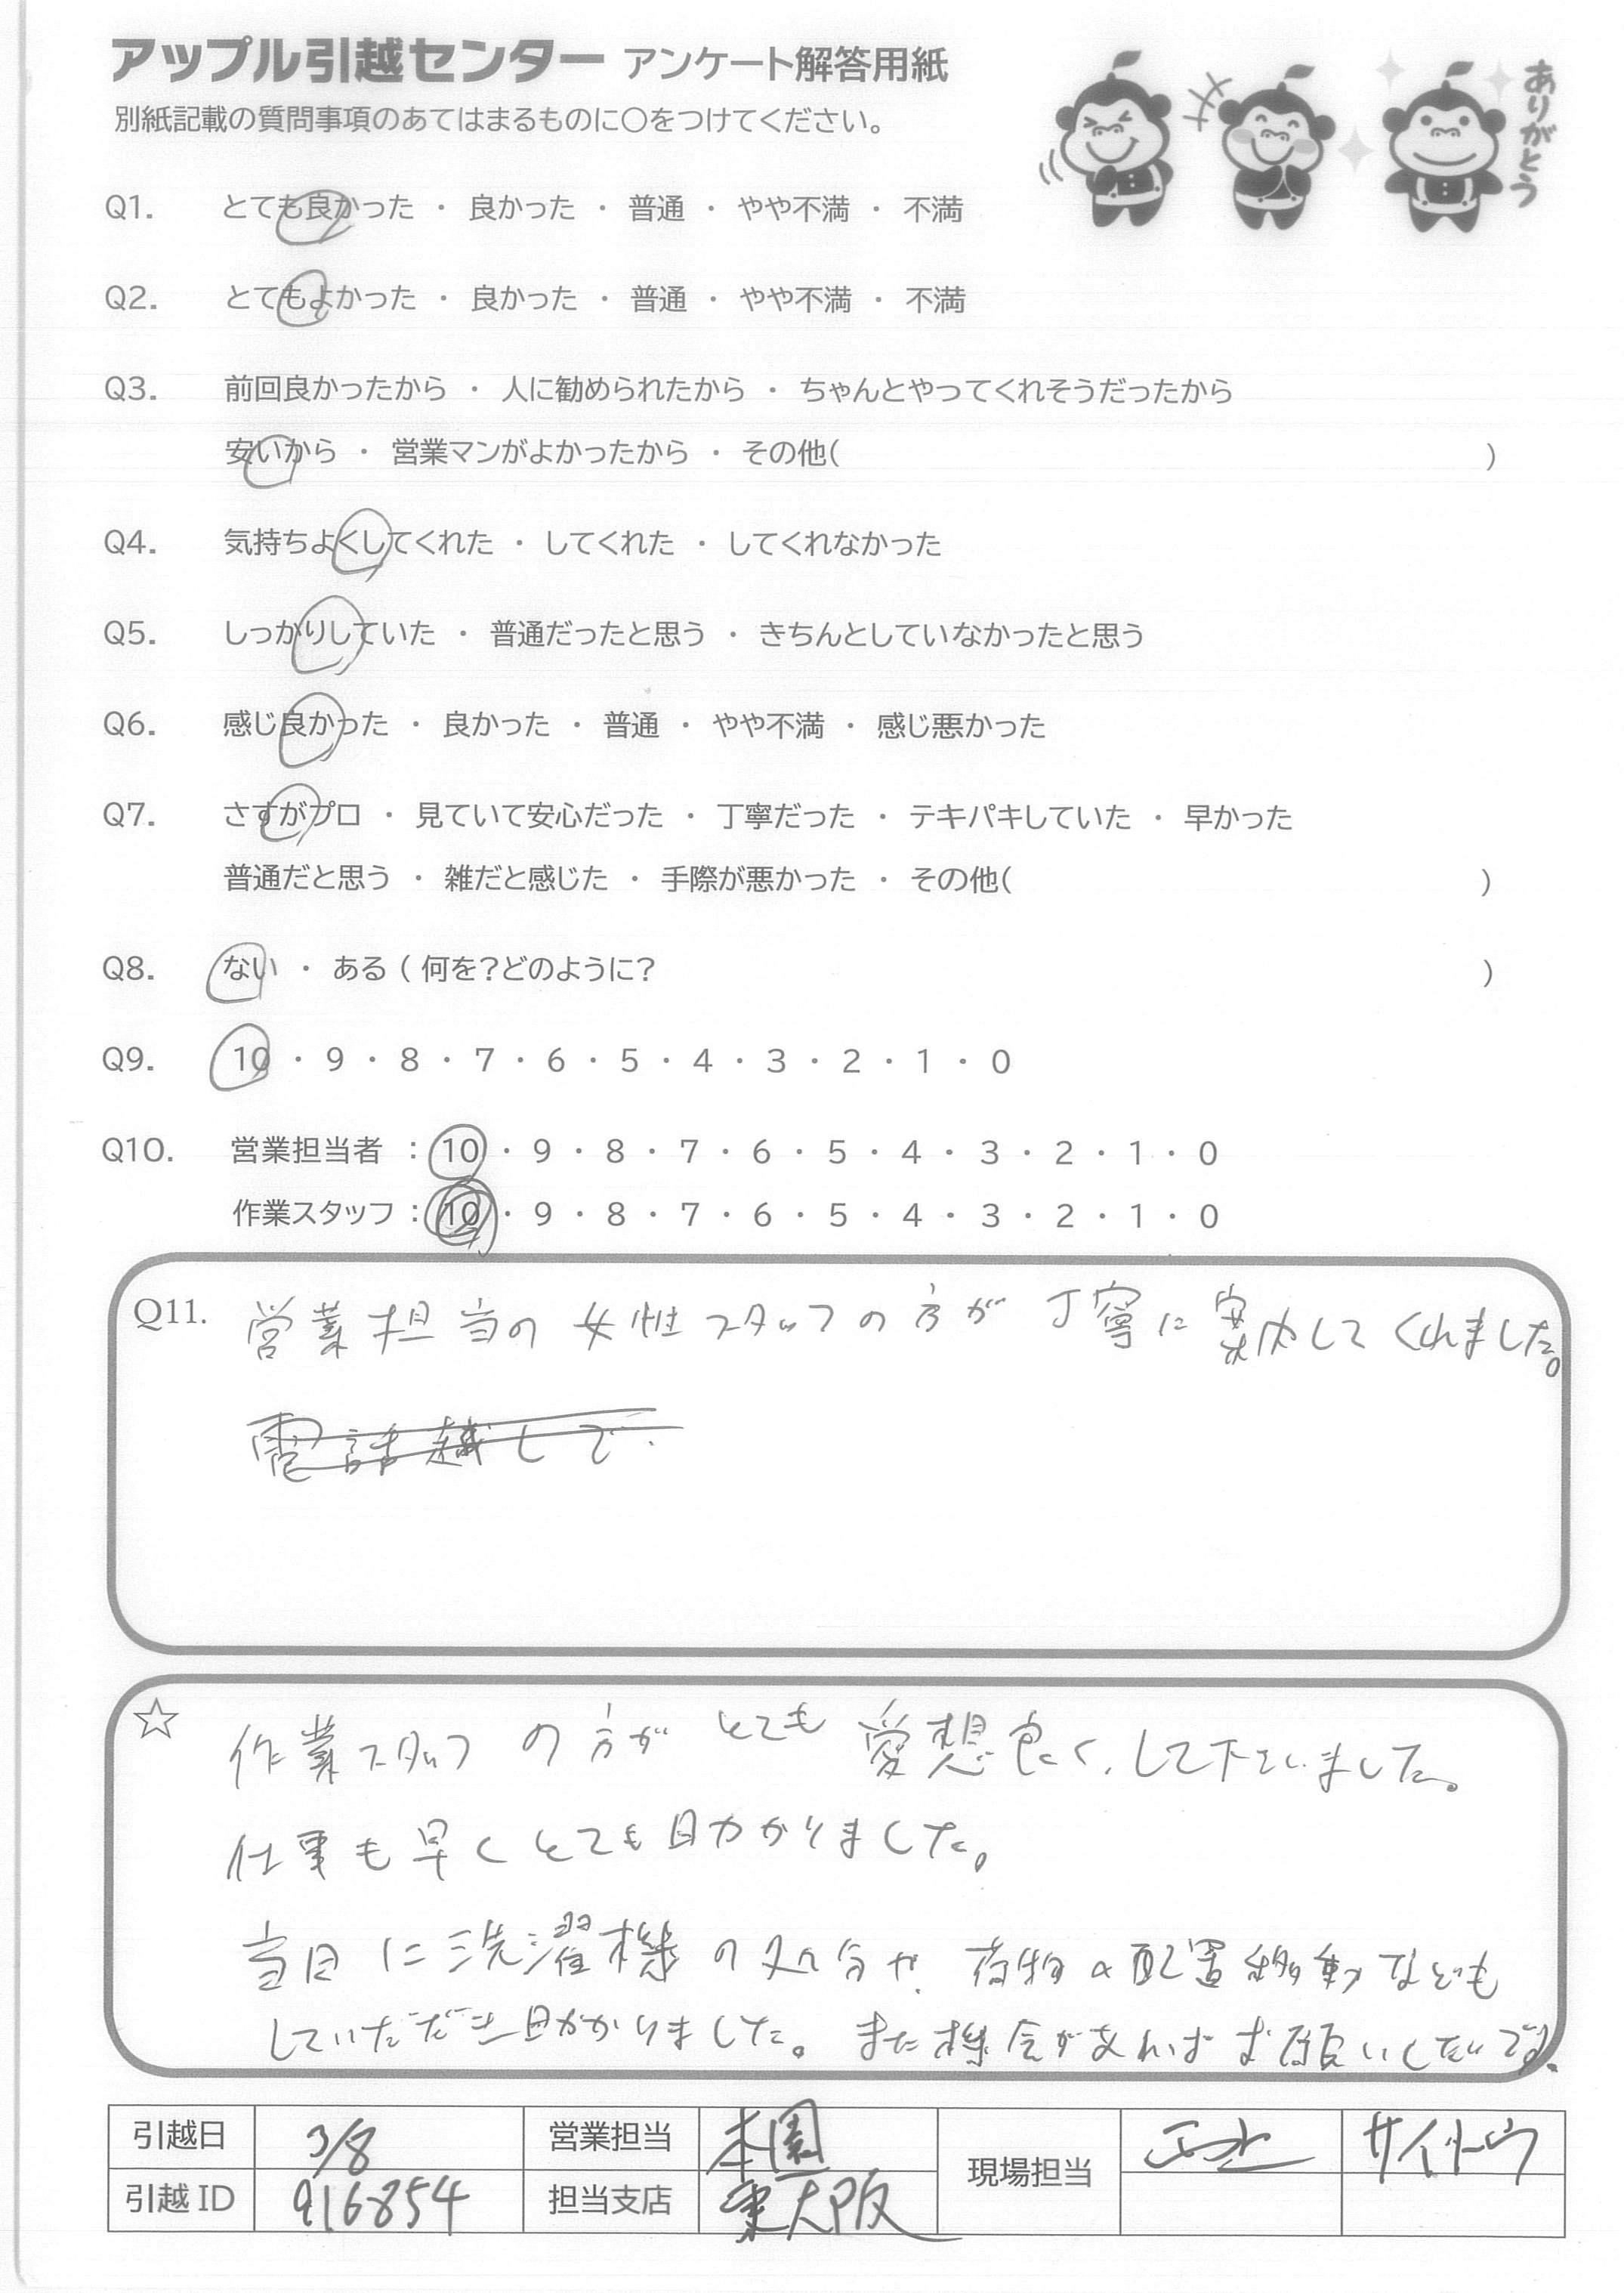 アップル引越センター アンケート解答用紙
別紙記載の質問事項のあてはまるものに○をつけてください。
ありがとう
Q1. とても良かった ・ 良かった ・ 普通 ・ やや不満 ・ 不満
Q2. とてもよかった ・ 良かった ・ 普通 ・ やや不満 ・ 不満
Q3. 前回良かったから ・ 人に勧められたから ・ ちゃんとやってくれそうだったから
安いから ・ 営業マンがよかったから ・ その他( )
Q4. 気持ちよくしてくれた ・ してくれた ・ してくれなかった
Q5. しっかりしていた ・ 普通だったと思う ・ きちんとしていなかったと思う
Q6. 感じ良かった ・ 良かった ・ 普通 ・ やや不満 ・ 感じ悪かった
Q7. さすがプロ ・ 見ていて安心だった ・ 丁寧だった ・ テキパキしていた ・ 早かった
普通だと思う ・ 雑だと感じた ・ 手際が悪かった ・ その他( )
Q8. ない ・ ある ( 何を?どのように? )
Q9. 10 ・ 9 ・ 8 ・ 7 ・ 6 ・ 5 ・ 4 ・ 3 ・ 2 ・ 1 ・ 0
Q10. 営業担当者 : 10 ・ 9 ・ 8 ・ 7 ・ 6 ・ 5 ・ 4 ・ 3 ・ 2 ・ 1 ・ 0
作業スタッフ : 10 ・ 9 ・ 8 ・ 7 ・ 6 ・ 5 ・ 4 ・ 3 ・ 2 ・ 1 ・ 0
Q11. 営業担当の女性スタッフの方が丁寧に案内してくれました。
電話越しで
☆ 作業スタッフの方がとても愛想良く、して下さいました。
仕事も早くとても助かりました。
当日に洗濯機の処分や、荷物の配置移動なども
していただき助かりました。また機会があればお願いしたいです。
引越日 3/8 営業担当 本園 現場担当 サイトウ
引越ID 916854 担当支店 東大阪